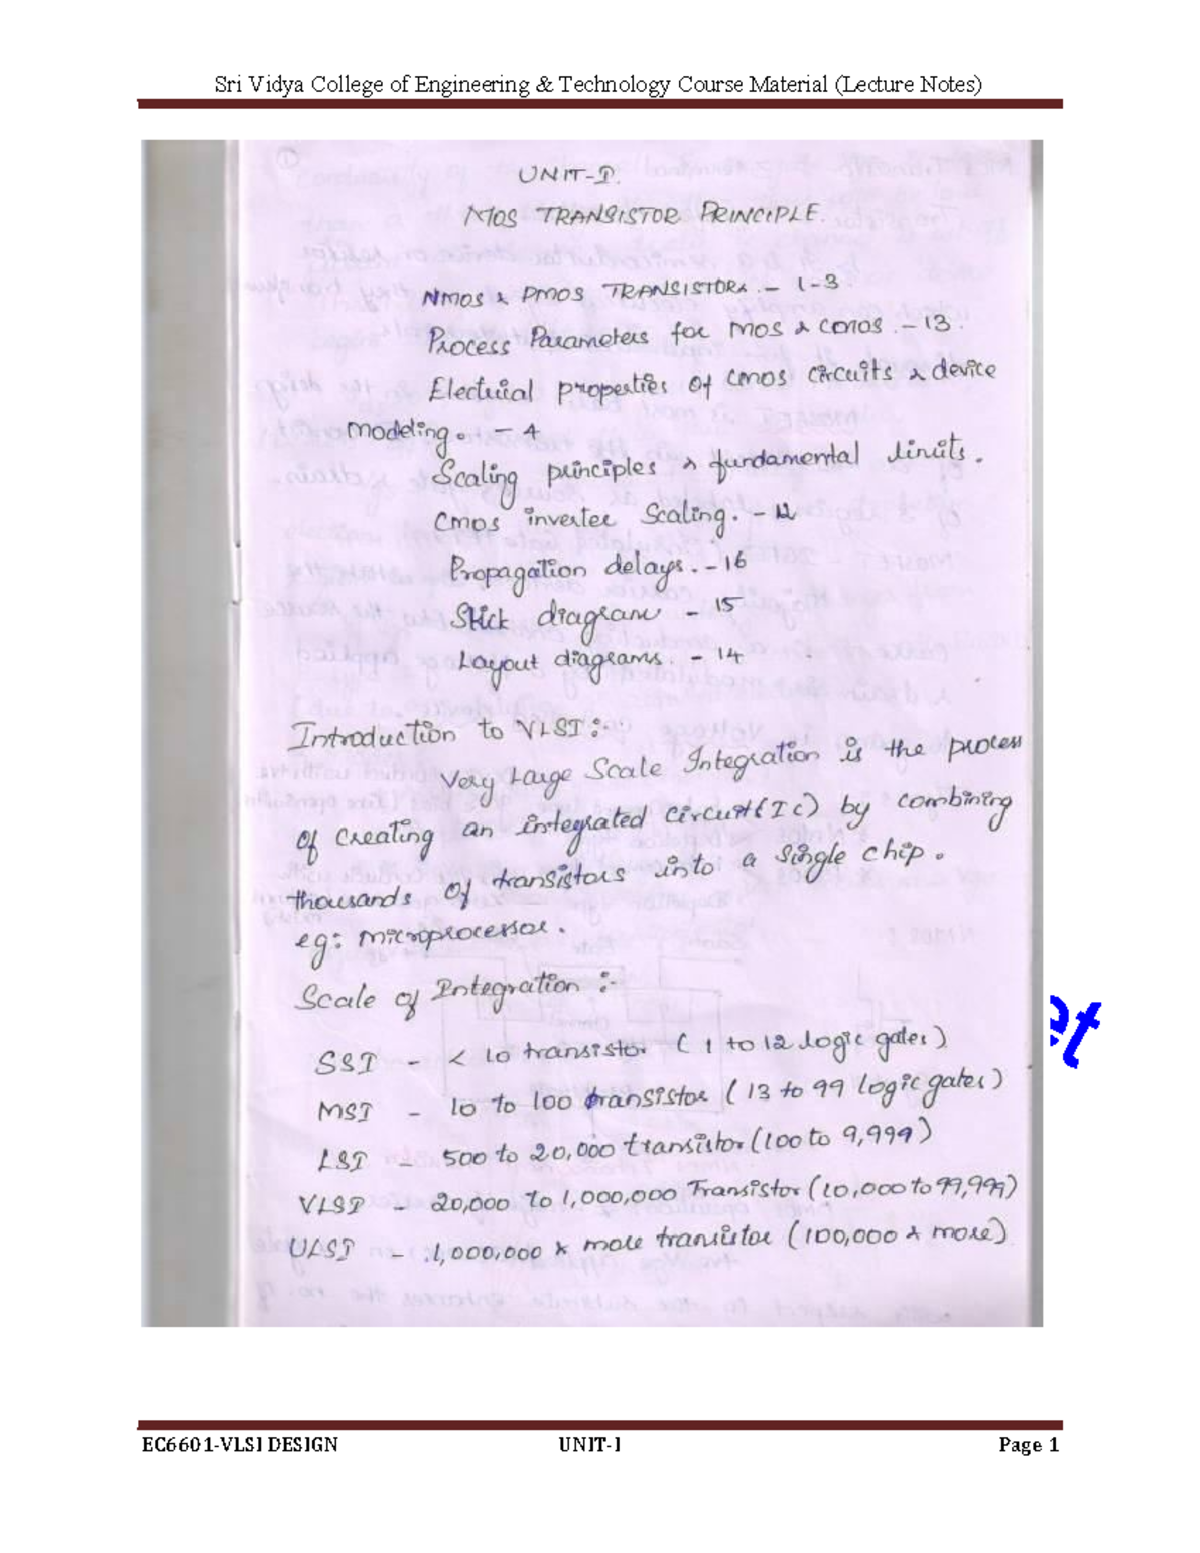 Sri Vidya College of Engineering & Technology Course Material (Lecture Notes)
UNIT-I.
MOS TRANSISTOR PRINCIPLE.
NMOS & PMOS TRANSISTORs. - 1-3
Process Parameters for MOS & CMOS. - 13.
Electrical properties of CMOS circuits & device
modeling. - 4
Scaling principles & fundamental limits.
CMOS inverter Scaling. -
Propagation delays. - 16
Stick diagram - 15
Layout diagrams. - 14
Introduction to VLSI :-
Very Large Scale Integration is the process
of creating an integrated circuit (IC) by combining
thousands of transistors into a single chip.
eg: microprocessor.
Scale of Integration :-
SSI - < 10 transistor (1 to 12 logic gates)
MSI - 10 to 100 transistor (13 to 99 logic gates)
LSI - 500 to 20,000 transistor (100 to 9,999)
VLSI - 20,000 to 1,000,000 Transistor (10,000 to 99,999)
ULSI - 1,000,000 & more transistor (100,000 & more)
et
EC6601-VLSI DESIGN UNIT-I Page 1